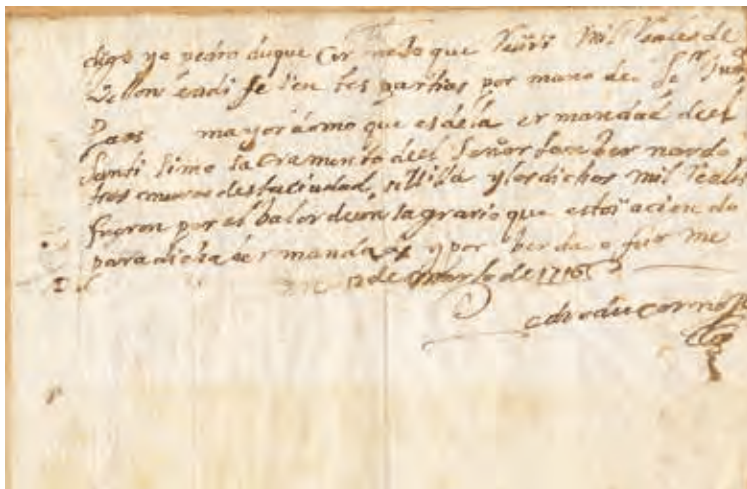 digo yo pedro duque Cornejo que Reciví Mil Reales de
Vellon en diferen tes partias por mano de Juan
Paes mayordomo que es de la er mandad deel
Santi simo Sacramento deel Señor San Ber nardo
tros muros desta ciudad, y los dichos mil reales
fueron por el balor de un sagrario que estoi acien do
para dicha er mandad y por berda o fir me
en 12 de Marzo de 1716